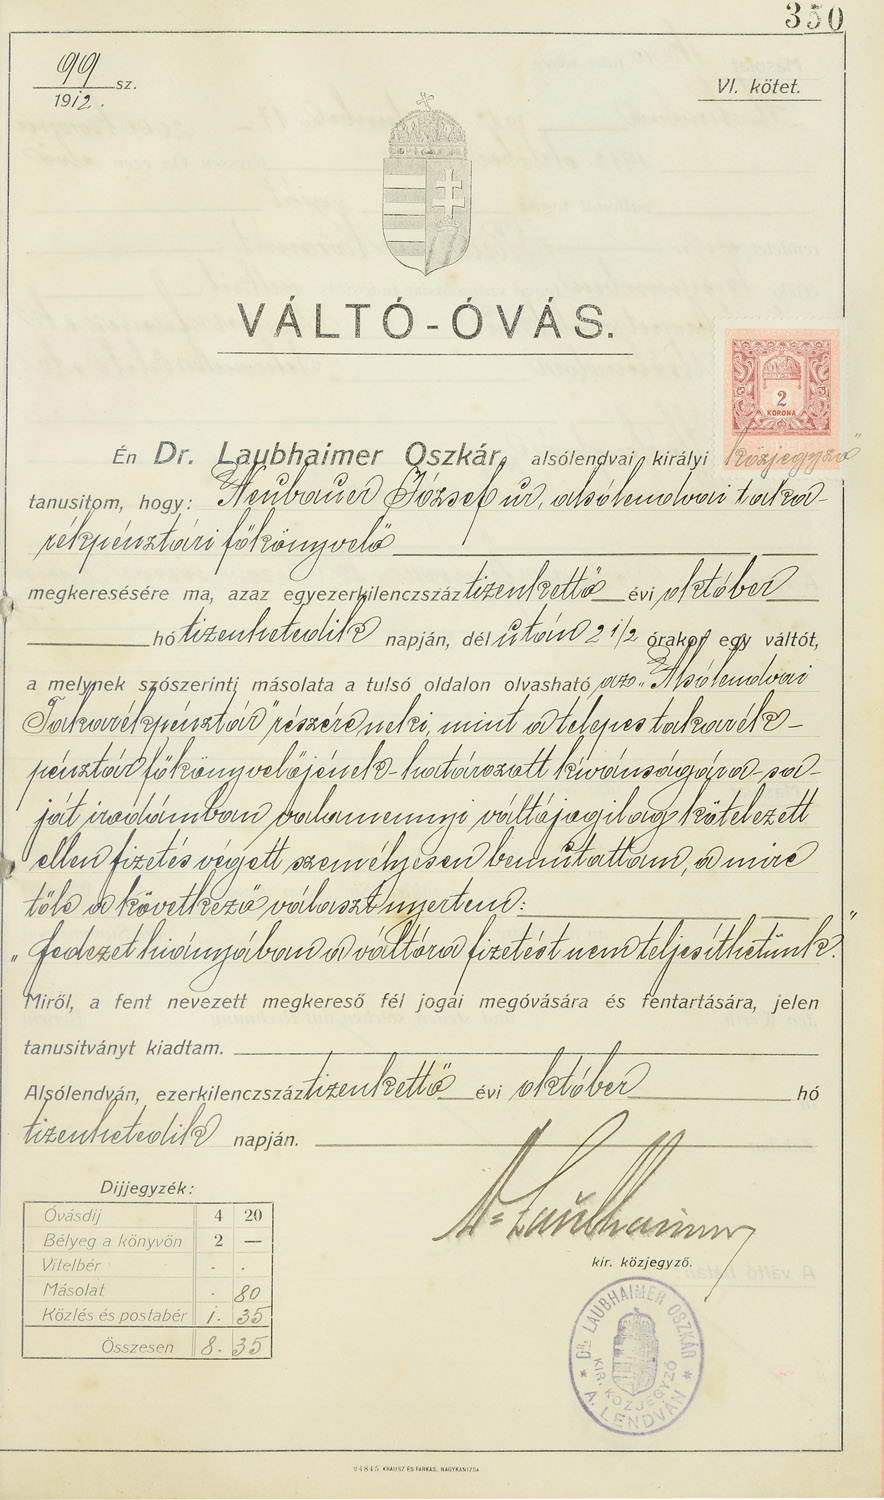 350
99 sz.
1912.
VI. kötet.
VÁLTÓ-ÓVÁS.
2
KORONA
Én Dr. Laubhaimer Oszkár, alsólendvai királyi közjegyző
tanusitom, hogy: Neubauer József ur, alsólendvai taka-
rékpénztári főkönyvelő
megkeresésére ma, azaz egyezerkilenczszáz tizenkettő évi október
hó tizenhetedik napján, dél után 2 1/2 órakor egy váltót,
a melynek szószerinti másolata a tulsó oldalon olvasható az „Alsólendvai
Takarékpénztár" részére neki, mint a telepes takarék-
pénztár főkönyvelőjének - határozott kívánságára - sa-
ját irodámban valamennyi váltójogilag kötelezett
ellen fizetés végett személyesen bemutattam, a mire
tőle a következő választ nyertem:
„fedezet hiányában a váltóra fizetést nem teljesíthetünk."
Miről, a fent nevezett megkereső fél jogai megóvására és fentartására, jelen
tanusitványt kiadtam.
Alsólendván, ezerkilenczszáz tizenkettő évi október hó
tizenhetedik napján.
Dr Laubhaimer
kir. közjegyző.
Dijjegyzék:
Óvásdij 4 20
Bélyeg a könyvön 2 —
Vitelbér . .
Másolat . 80
Közlés és postabér 1. 35
Összesen 8. 35
* Dr. LAUBHAIMER OSZKÁR *
KIR. KÖZJEGYZŐ
A. LENDVÁN
24845 KRAUSZ ÉS FARKAS, NAGYKANIZSA